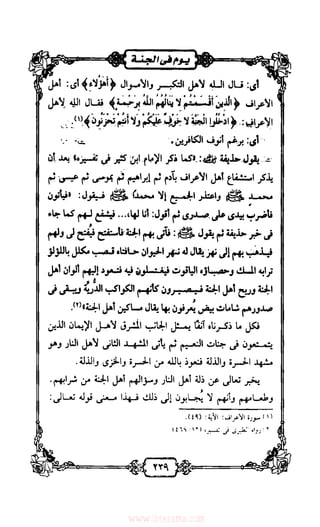 يوم فى الجنة
أى: قال الله لأهل التكبر والأموال ﴿أَهَؤُلاءِ﴾ أى: أهل
الأعراف ﴿الَّذِينَ أَقْسَمْتُمْ لا يَنَالُهُمُ اللَّهُ بِرَحْمَةٍ﴾ فقال الله لأهل
الأعراف: ﴿ادْخُلُوا الْجَنَّةَ لا خَوْفٌ عَلَيْكُمْ وَلا أَنْتُمْ تَحْزَنُونَ﴾(١).
أى: برغم أنوف الكافرين.
يقول حذيفة: «كما ذكر الإمام ابن كثير فى تفسيره» بعد أن
يذكر استشفاع أهل الأعراف بآدم ثم إبراهيم ثم موسى ثم عيسى ثم
محمد ﷺ واعتذر الجميع إلا محمدًا ﷺ فيقول: «فيأتون
فأضرب بيدى على صدرى ثم أقول: أنا لها...، فيشفع لهم كما جاء
فى خبر حذيفة ثم يقول ﷺ: ثم آتى الجنة فأستفتح فيُفتح لى ولهم
فيذهب بهم إلى نهر يقال له نهر الحيوان حافتاه قصب مكلل باللؤلؤ
ترابه المسك وحصباؤه الياقوت فيغتسلون فيه فتعود إليهم ألوان أهل
الجنة وريح أهل الجنة فيصيرون كأنهم الكواكب الدُّرية ويبقى فى
صدورهم شامات بيض يعرفون بها يقال مساكين أهل الجنة»(٢).
فكل ما ذكرناه آنفًا يمثل الجانب المشرق لأهل الإيمان الذين
يتمتعون فى جنات النعيم ثم يأتى المشهد الثانى لأهل النار وهو
مشهد الحسرة والذلة فنعوذ بالله من الحسرة والخزى والذلة.
يخبر تعالى عن ذلة أهل النار وسؤالهم أهل الجنة من شرابهم
وطعامهم وأنهم لا يُجابون إلى ذلك فهذا معنى قوله تعالى:
(١) سورة الأعراف: الآية: (٤٩).
٢٣٩